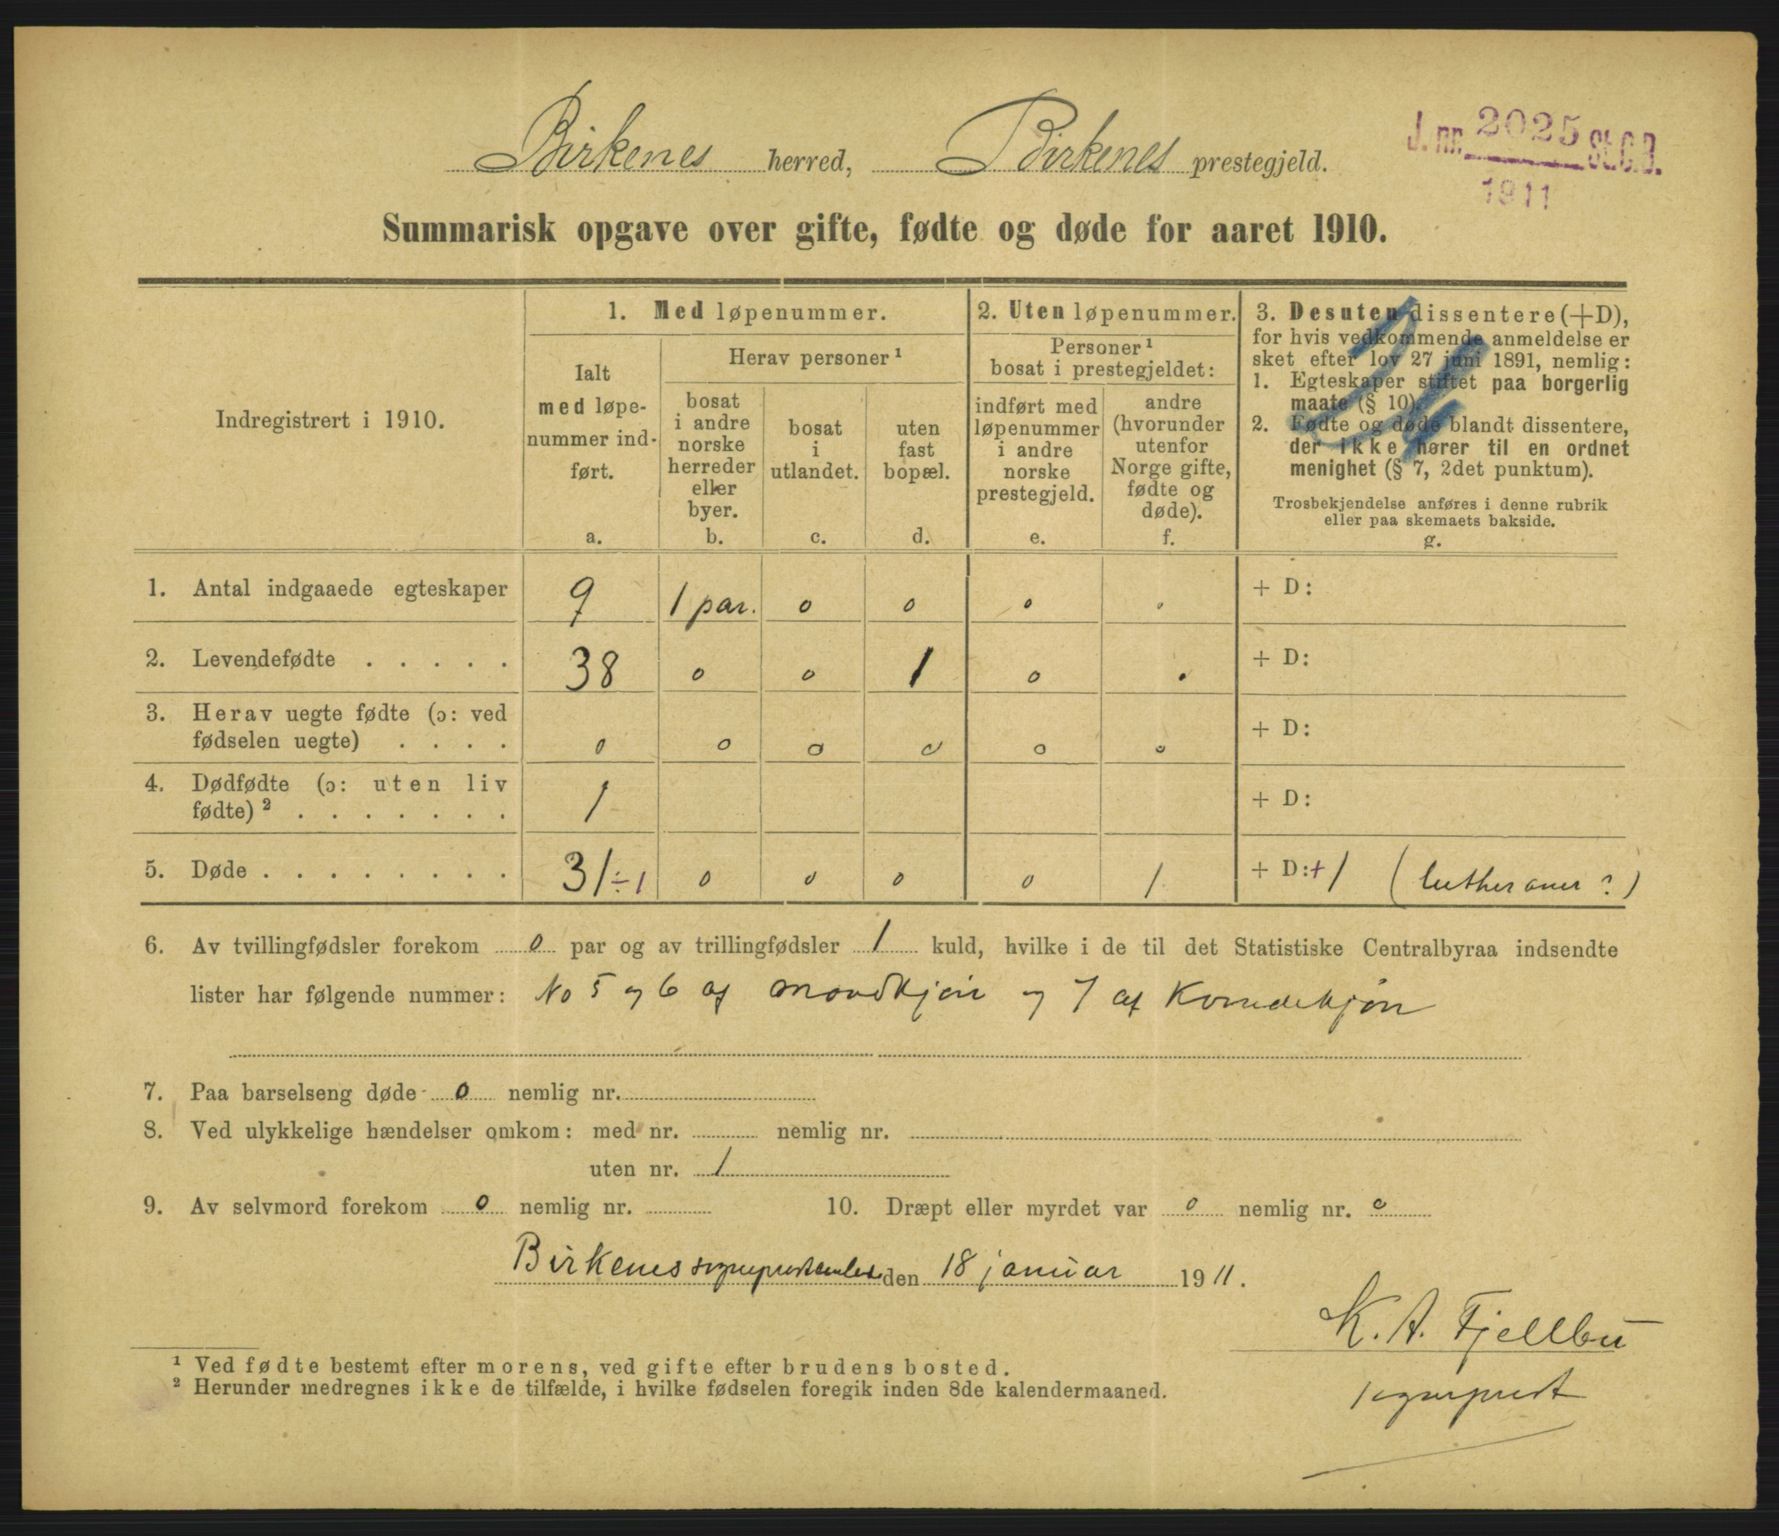 Birkenes herred, Birkenes prestegjeld.
J. nr. 2025 St.C.B.
1911
Summarisk opgave over gifte, fødte og døde for aaret 1910.
Indregistrert i 1910.
1. Med løpenummer.
Ialt
med løpe-
nummer ind-
ført.
a.
Herav personer ¹
bosat
i andre
norske
herreder
eller
byer.
b.
bosat
i
utlandet.
c.
uten
fast
bopæl.
d.
2. Uten løpenummer.
Personer ¹
bosat i prestegjeldet:
indført med
løpenummer
i andre
norske
prestegjeld.
e.
andre
(hvorunder
utenfor
Norge gifte,
fødte og
døde).
f.
3. Desuten dissentere (+D),
for hvis vedkommende anmeldelse er
sket efter lov 27 juni 1891, nemlig:
1. Egteskaper stiftet paa borgerlig
maate (§ 10).
2. Fødte og døde blandt dissentere,
der ikke hører til en ordnet
menighet (§ 7, 2det punktum).
Trosbekjendelse anføres i denne rubrik
eller paa skemaets bakside.
g.
1. Antal indgaaede egteskaper 9 1 par. 0 0 0 0 + D:
2. Levendefødte . . . . . 38 0 0 1 0 . + D:
3. Herav uegte fødte (ɔ: ved
fødselen uegte) . . . . 0 0 0 0 0 0 + D:
4. Dødfødte (ɔ: uten liv
fødte) ² . . . . . . . 1 + D:
5. Døde . . . . . . . . 31 ÷1 0 0 0 0 1 + D: +1 (lutheraner ?)
6. Av tvillingfødsler forekom 0 par og av trillingfødsler 1 kuld, hvilke i de til det Statistiske Centralbyraa indsendte
lister har følgende nummer: No 5 og 6 af mandkjøn og 7 af Kvindekjøn
7. Paa barselseng døde 0 nemlig nr.
8. Ved ulykkelige hændelser omkom: med nr. nemlig nr.
uten nr. 1
9. Av selvmord forekom 0 nemlig nr. 10. Dræpt eller myrdet var 0 nemlig nr. 0
Birkenes sogneprestembede den 18 januar 1911.
K. A. Fjellbu
sogneprest
¹ Ved fødte bestemt efter morens, ved gifte efter brudens bosted.
² Herunder medregnes ikke de tilfælde, i hvilke fødselen foregik inden 8de kalendermaaned.